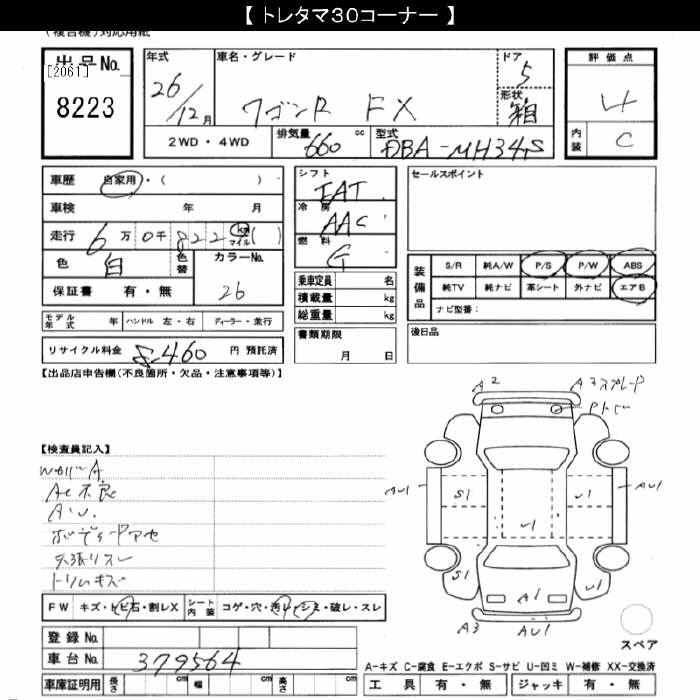 【 トレタマ30コーナー 】
(複合機)対応用紙
出品No.
[2061]
8223
年式
26/12月
車名・グレード
ワゴンR FX
ドア
5
形状
箱
評価点
4
内装
C
2WD・4WD
排気量
660 cc
型式
DBA-MH34S
車歴 自家用・( )
車検 年 月
走行 6万0千822 km マイル ( )
色 白
色替
カラーNo.
26
保証書 有・無
モデル年式 年
ハンドル 左・右
ディーラー・並行
リサイクル料金 8,460 円 預託済
シフト
FAT
冷房
AAC
燃料
G
乗車定員 名
積載量 kg
総重量 kg
書類期限
月 日
セールスポイント
装備品
S/R 純A/W P/S P/W ABS
純TV 純ナビ 革シート 外ナビ エアB
ナビ型番:
後日品
【出品店申告欄(不良箇所・欠品・注意事項等)】
【検査員記入】
A
AC不良
AU.
ボディードアセ
天張りスレ
トリムキズ
A2
A3スプレード
Pトビ
AU1
S1
U1
AU1
U1
S1
U1
A1
A3
AU1
スペア
FW キズ・トビ石・割レX
シート内装 コゲ・穴・汚レ・シミ・破レ・スレ
登録No.
車台No. 379564
車庫証明用 長さ cm 幅 cm 高さ cm
A-キズ C-腐食 E-エクボ S-サビ U-凹ミ W-補修 XX-交換済
工具 有・無 ジャッキ 有・無